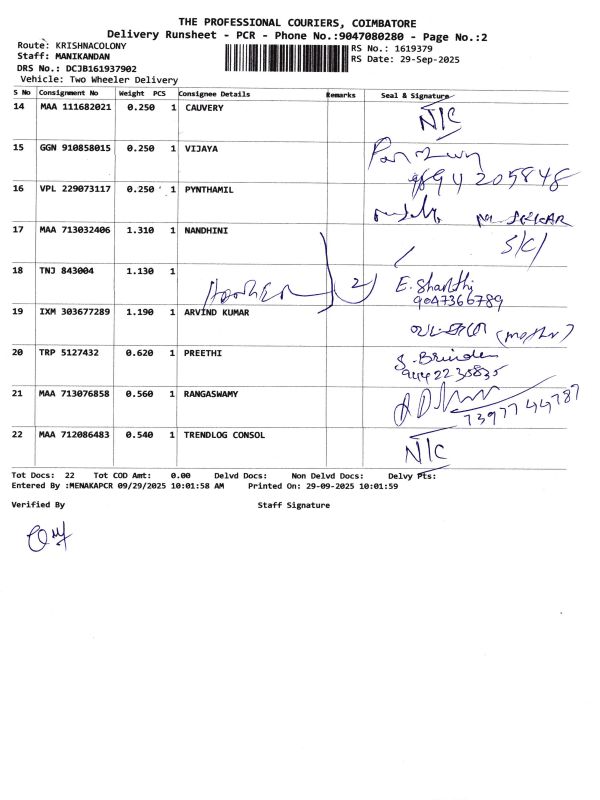 THE PROFESSIONAL COURIERS, COIMBATORE
Delivery Runsheet - PCR - Phone No.:9047080280 - Page No.:2
Route: KRISHNACOLONY
RS No.: 1619379
Staff: MANIKANDAN
RS Date: 29-Sep-2025
DRS No.: DCJB161937902
Vehicle: Two Wheeler Delivery
S No Consignment No Weight PCS Consignee Details Remarks Seal & Signature
14 MAA 111682021 0.250 1 CAUVERY
N/C
15 GGN 910858015 0.250 1 VIJAYA
16 VPL 229073117 0.250 1 PYNTHAMIL
17 MAA 713032406 1.310 1 NANDHINI
S/C/
18 TNJ 843004 1.130 1
2
E. Shanthi
9047366789
19 IXM 303677289 1.190 1 ARVIND KUMAR
(mother)
20 TRP 5127432 0.620 1 PREETHI
9442230835
21 MAA 713076858 0.560 1 RANGASWAMY
7397744787
22 MAA 712086483 0.540 1 TRENDLOG CONSOL
N/C
Tot Docs: 22 Tot COD Amt: 0.00 Delvd Docs: Non Delvd Docs: Delvy Pts:
Entered By :MENAKAPCR 09/29/2025 10:01:58 AM Printed On: 29-09-2025 10:01:59
Verified By Staff Signature